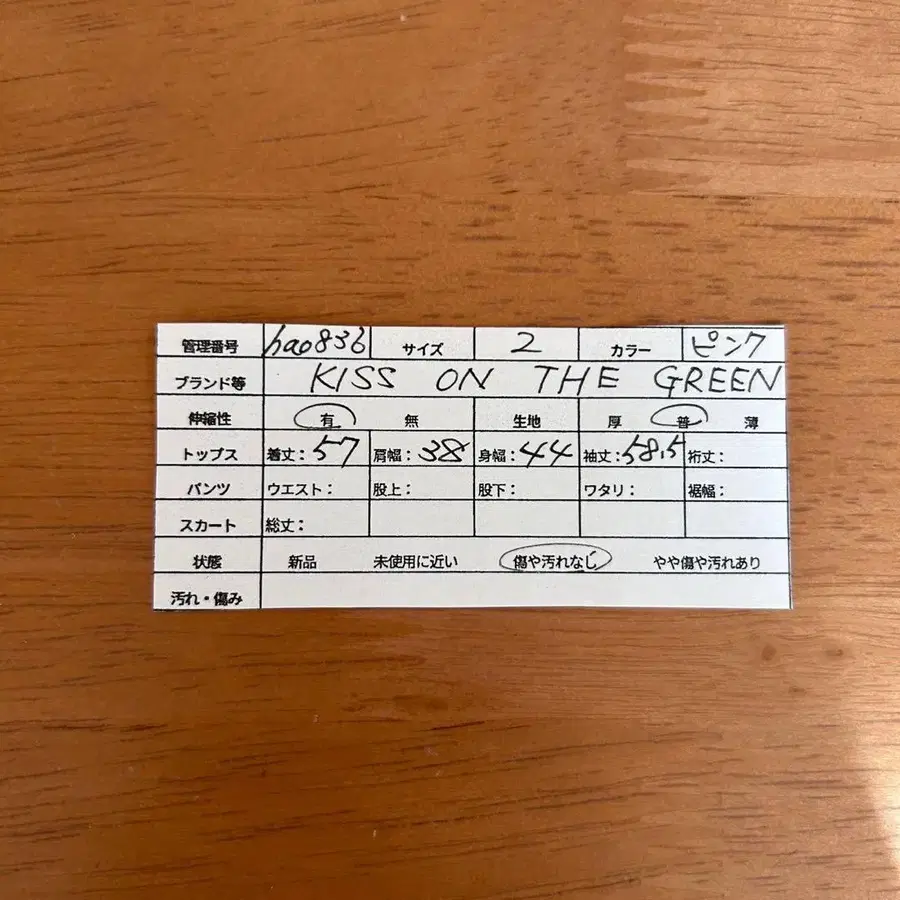 管理番号 hao836 サイズ 2 カラー ピンク
ブランド等 KISS ON THE GREEN
伸縮性 有 無 生地 厚 普 薄
トップス 着丈：57 肩幅：38 身幅：44 袖丈：58.5 裄丈：
パンツ ウエスト： 股上： 股下： ワタリ： 裾幅：
スカート 総丈：
状態 新品 未使用に近い 傷や汚れなし やや傷や汚れあり
汚れ・傷み